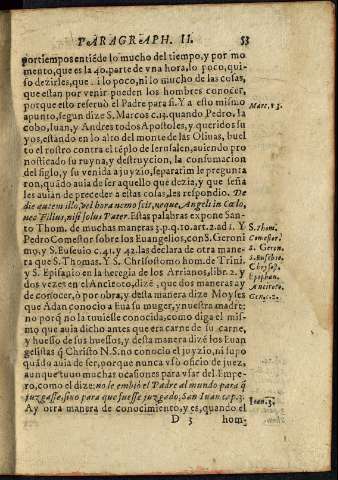 PARAGRAPH. II. 53
por tiempos entiēde lo mucho del tiempo, y por mo
mento, que es la 40. parte de vna hora, lo poco, qui-
so dezirles, que ni lo poco, ni lo mucho de las cosas,
que estan por venir pueden los hombres conocer,
porque esto reseruò el Padre para si. Y a esto mismo
apunto, segun dize S. Marcos c.13. quando Pedro, Ia
cobo, Iuan, y Andres todos Apostoles, y queridos su
yos, estando en lo alto del monte de las Oliuas, buel
to el rostro contra el tēplo de Ierusalen, auiendo pro
nosticado su ruyna, y destruycion, la consumacion
del siglo, y su venida a juyzio, separatim le pregunta
ron, quādo auia de ser aquello que dezia, y que seña
les auian de preceder a estas cosas, les respondio. De
die autem illo, vel hora nemo scit, neque, Angeli in Cœlo,
nec Filius, nisi solus Pater. Estas palabras expone San-
to Thom. de muchas maneras 3. p. q. 10. art. 2. ad 1. Y
Pedro Comestor sobre los Euangelios, con S. Geroni
mo, y S. Eusevio c. 41. y 42. las declara de otra mane-
ra que S. Thomas. Y S. Chrisostomo hom. de Trini,
y S. Epifanio en la heregia de los Arrianos, lib. 2. y
dos vezes en el Anciroto, dizē, que dos maneras ay
de conocer, ò por obra, y desta manera dize Moyses
que Adan conocio a Eua su muger, y nuestra madre;
no porq̄ no la tuuiesse conocida, como diga el mis-
mo que auia dicho antes que era carne de su carne,
y huesso de sus huessos, y desta manera dizē los Euan
gelistas q̄ Christo N. S. no conocio el juyzio, ni supo
quādo auia de ser, porque nunca vsò oficio de juez,
aunque tuuo muchas ocasiones para vsar del Impe-
ro, como el dize: no le embiò el Padre al mundo para q̄
juzgasse, sino para que fuesse juzgado, San Iuan cap. 3.
Ay otra manera de conocimiento, y es, quando el
D 3 hom-
Marc. 13.
S. Thom.
Comestor.
S. Geron.
S. Eusebio.
Chrysost.
Epiphan.
Anciroto.
Genes. 2.
Ioan. 3.